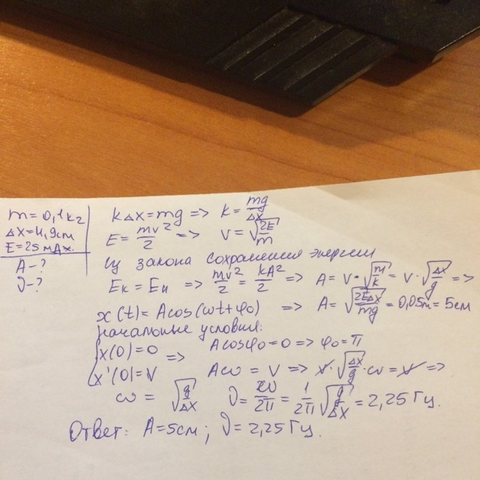 m = 0,1кг
Δx = 4,9см
E = 25 мДж.
A - ?
ν - ?
kΔx = mg => k = mg/Δx
E = mv²/2 => v = √(2E/m)
Из закона сохранения энергии
Eк = Eп => mv²/2 = kA²/2 => A = v·√(m/k) = v·√(Δx/g) =>
x(t) = Acos(ωt+φ₀) => A = √(2EΔx/mg) = 0,05м = 5см
начальные условия:
x(0) = 0 => Acosφ₀ = 0 => φ₀ = π
x'(0) = v Aω = v => v·√(Δx/g)·ω = v =>
ω = √(g/Δx) ν = ω/2π = 1/2π √(g/Δx) = 2,25 Гц.
Ответ: A = 5см; ν = 2,25 Гц.